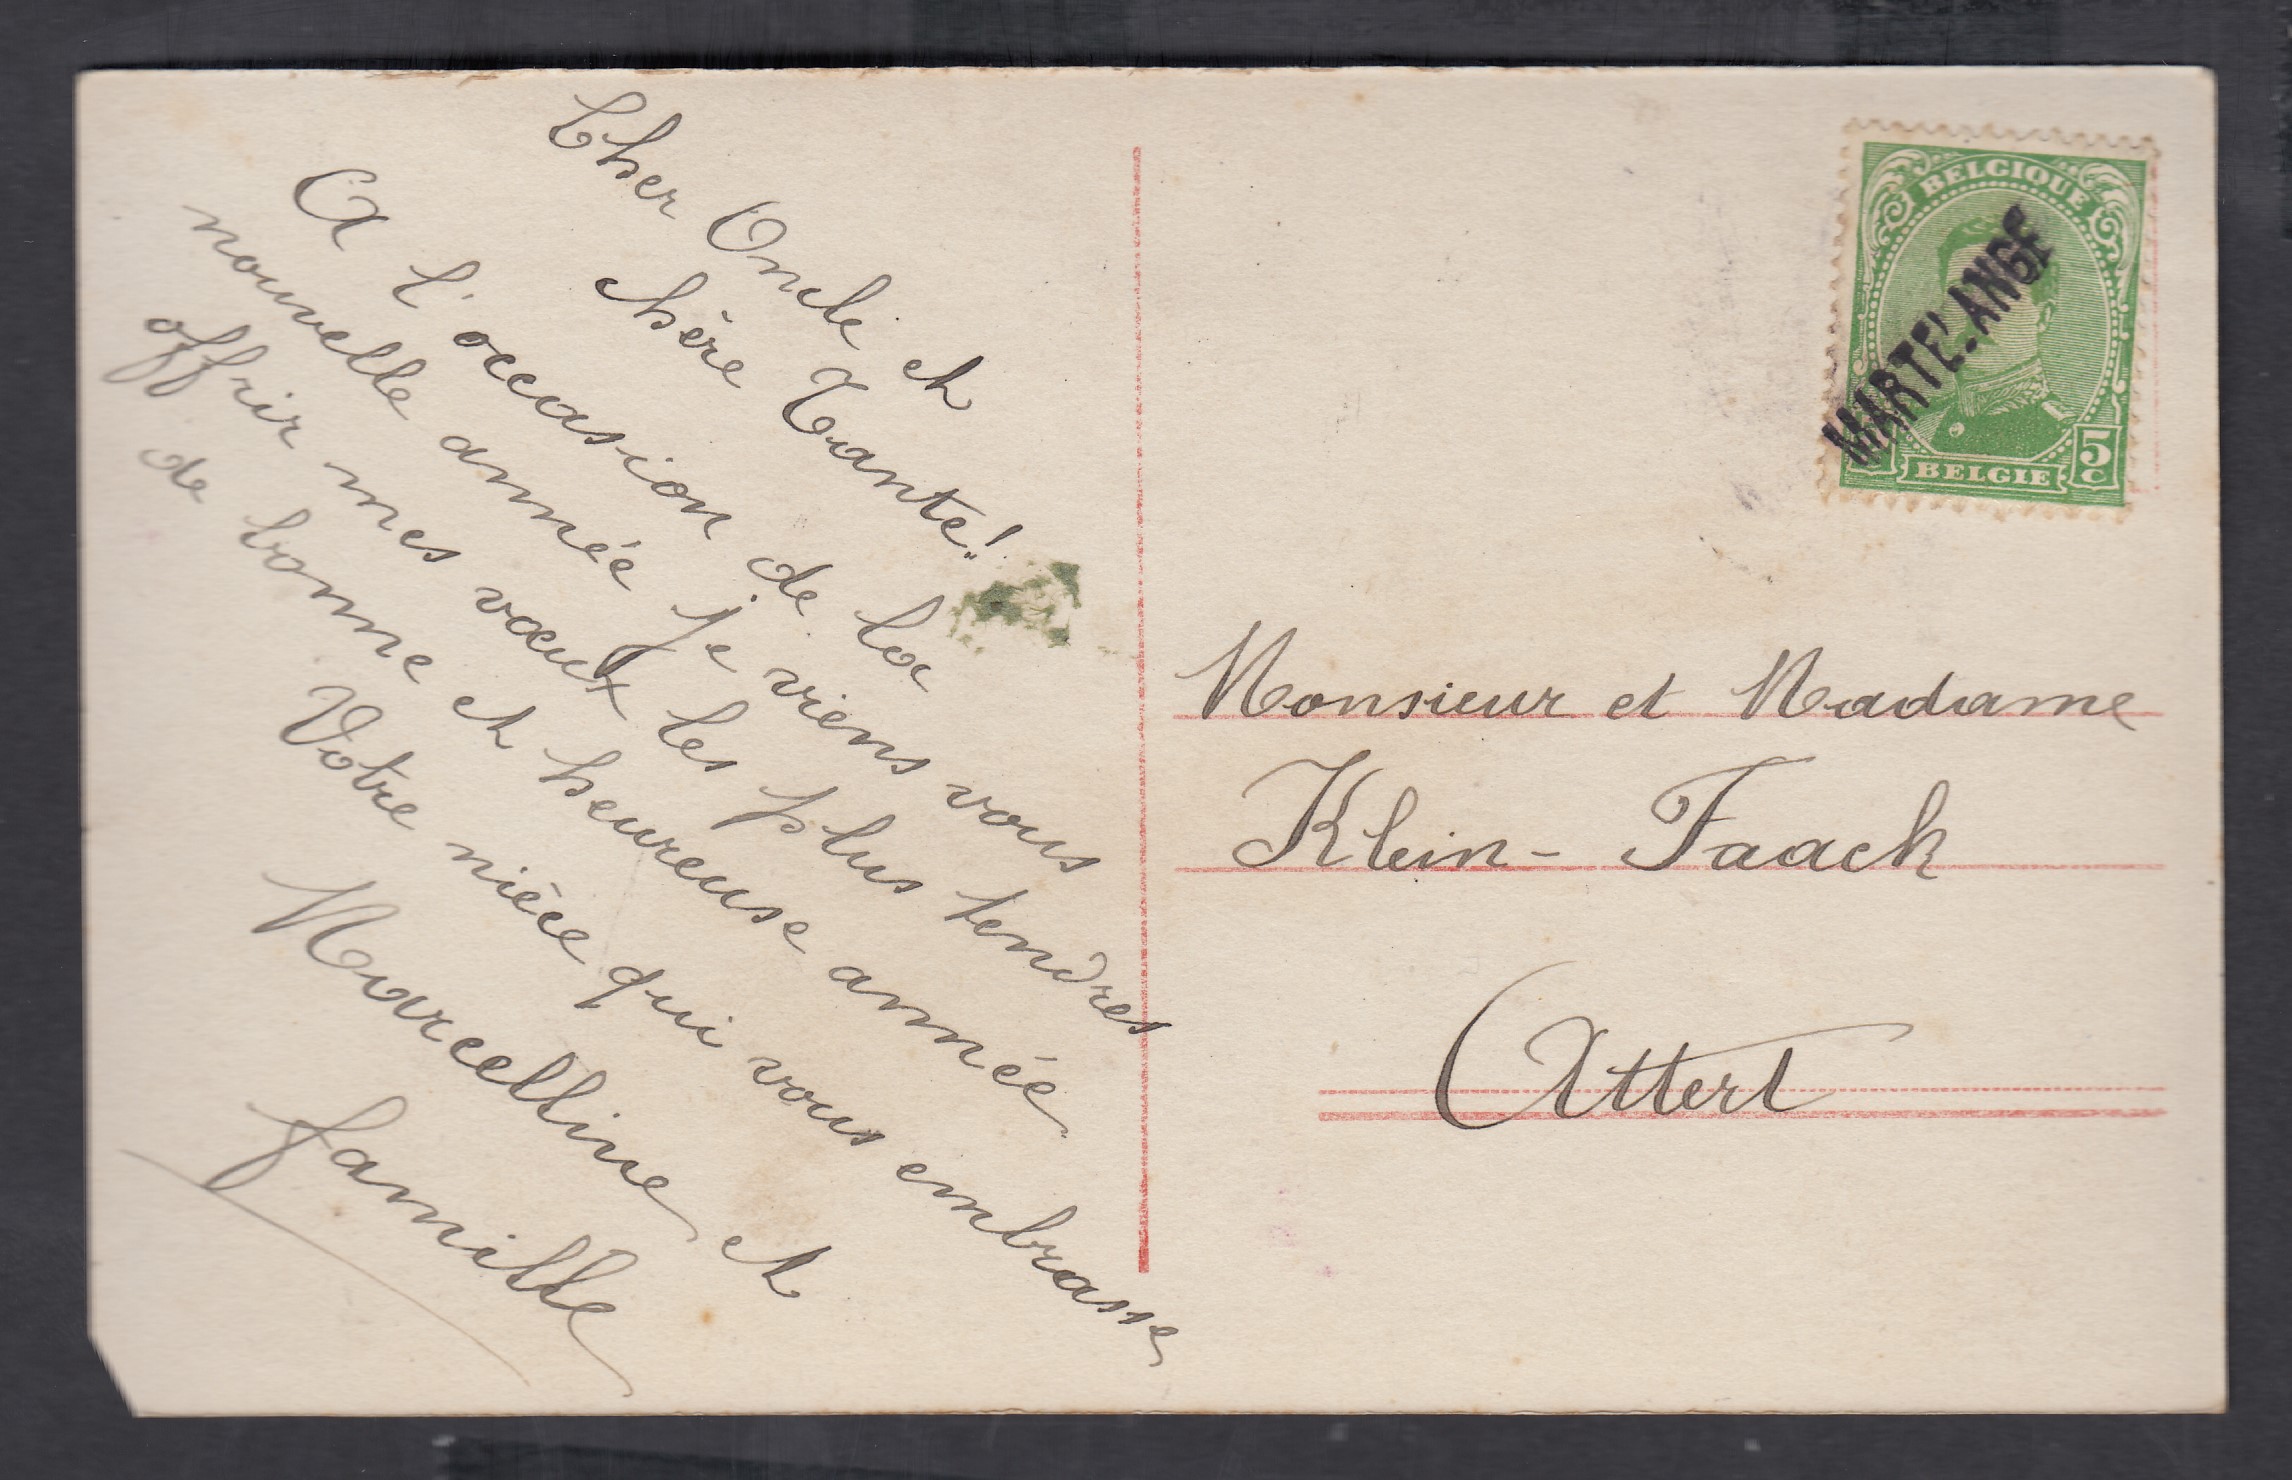 Cher Oncle et
chère Tante!
A l'occasion de la
nouvelle année je viens vous
offrir mes vœux les plus tendres
de bonne et heureuse année
Votre nièce qui vous embrasse
Marcelline et
famille
BELGIQUE
MARTELANGE
5 C
BELGIE
Monsieur et Madame
Klein-Faack
Attert